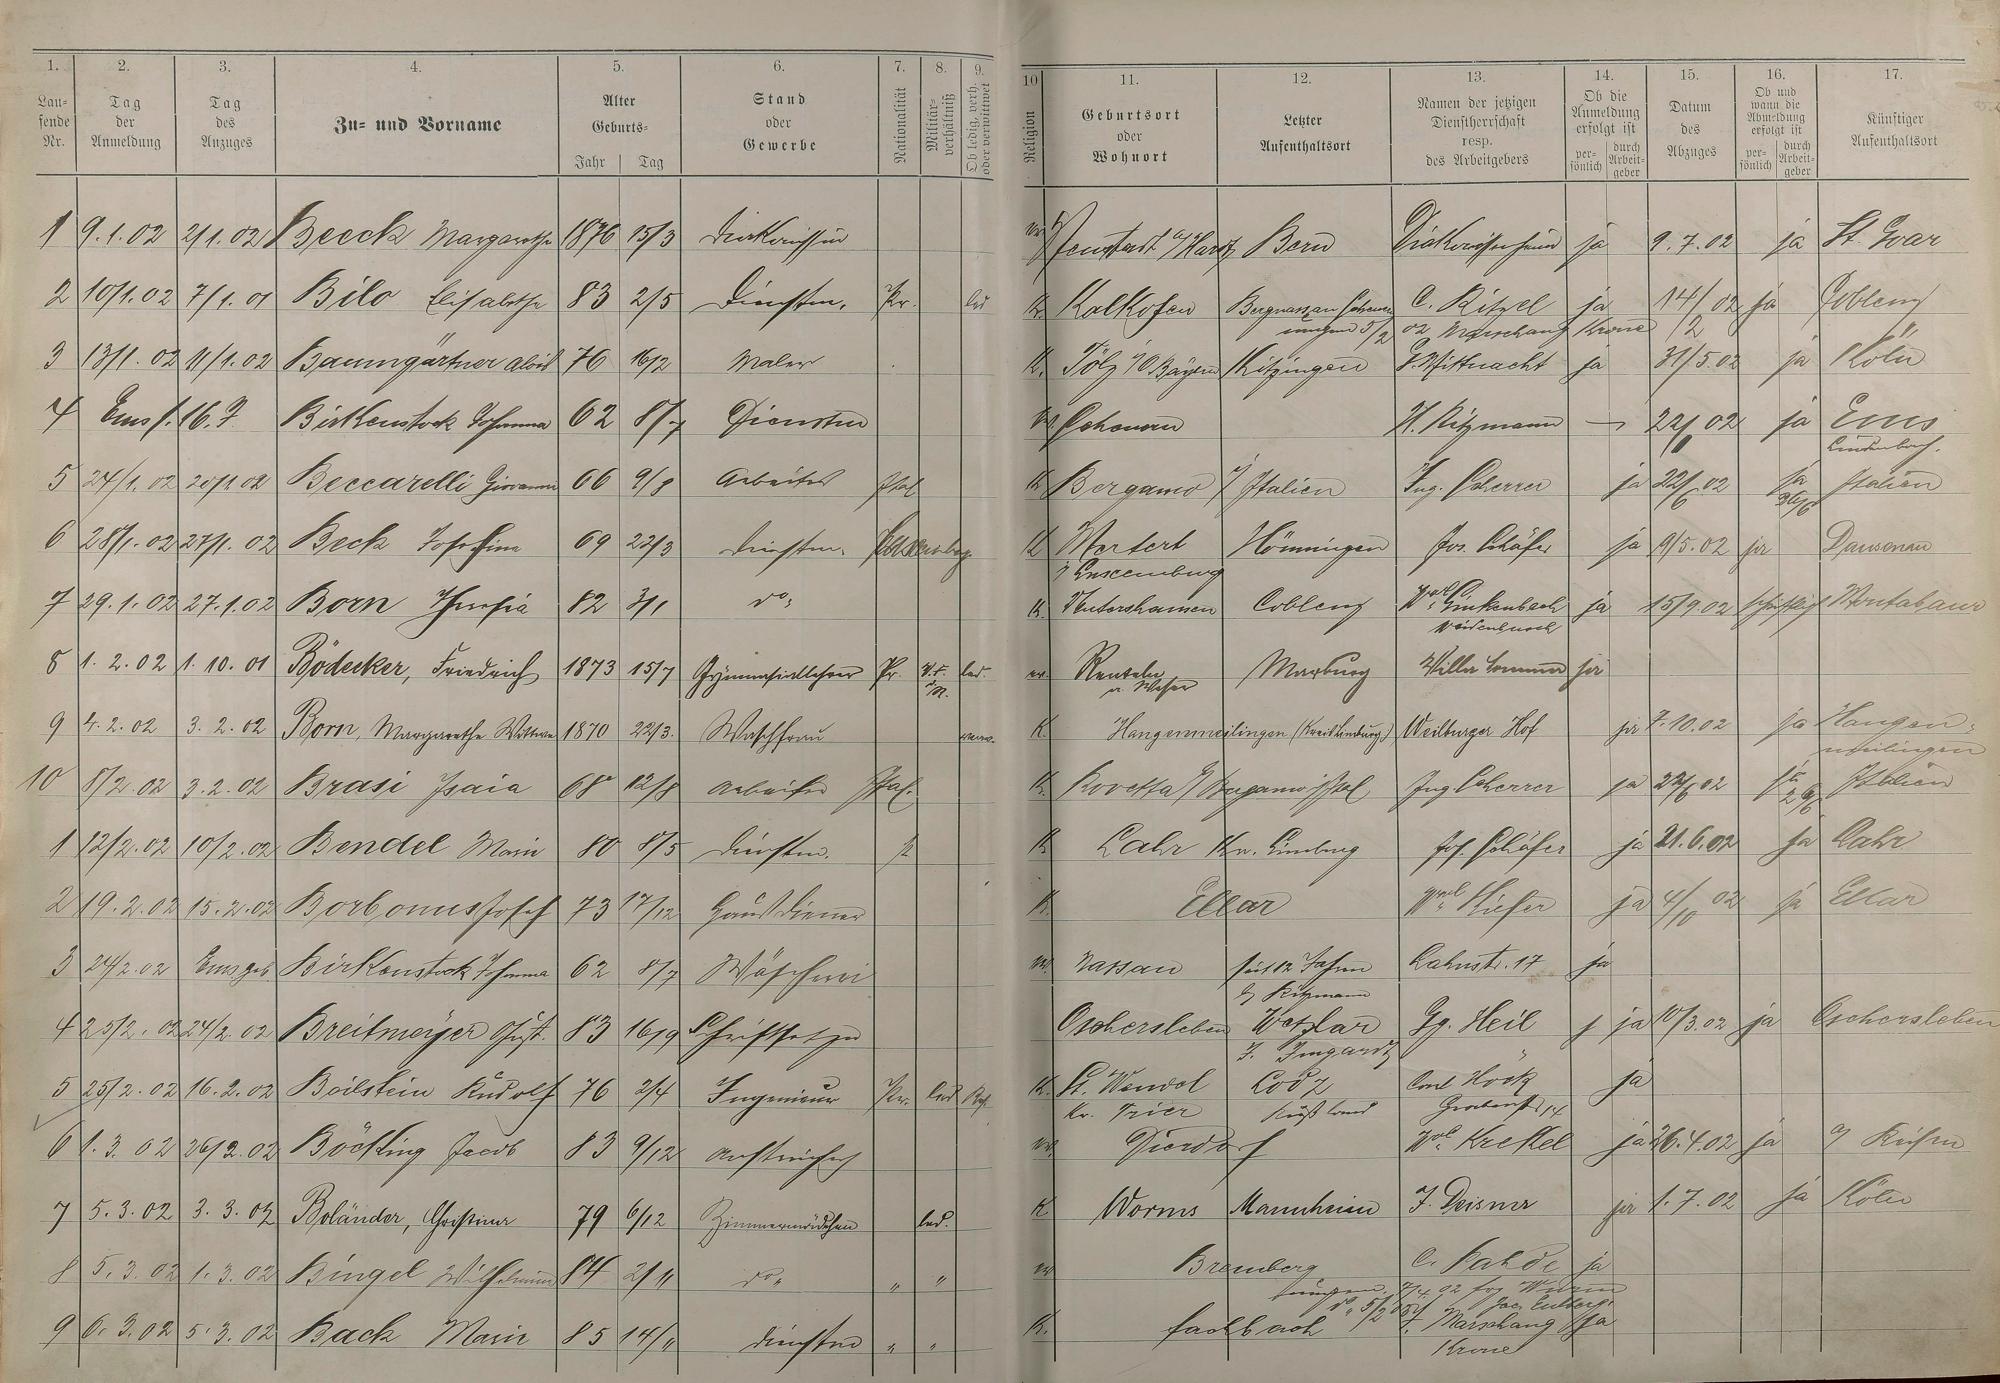 1. 2. 3. 4. 5. 6. 7. 8. 9. 10 11. 12. 13. 14. 15. 16. 17.
Lau-
fende
Nr.
Tag
der
Anmeldung
Tag
des
Anzuges
Zu- und Vorname
Alter
Geburts-
Jahr Tag
Stand
oder
Gewerbe
Nationalität
Militär-
verhältniß
Ob ledig, verh.
oder verwittwet
Religion
Geburtsort
oder
Wohnort
Letzter
Aufenthaltsort
Namen der jetzigen
Dienstherrschaft
resp.
des Arbeitgebers
Ob die
Anmeldung
erfolgt ist
per-
sönlich
durch
Arbeit-
geber
Datum
des
Abzuges
Ob und
wann die
Abmeldung
erfolgt ist
per-
sönlich
durch
Arbeit-
geber
Künftiger
Aufenthaltsort
1 9.1.02 2/1.02 Beeck Margarethe 1876 15/3 Diakonissin Neustadt a/Hardt Bern Diakonissenheim ja 9.7.02 ja St. Goar
2 10/1.02 7/1.01 Bilo Elisabethe 83 2/5 Dienstm. Pr. led K. Kalkofen Bergnassau C. Ritzel ja 14/2 02 ja Coblenz
5/2 02 Marschang Krone
3 13/1.02 11/1.02 Baumgärtner Alois 76 16/2 Maler K. Tölz /O Bayern Kitzingen Wittnacht ja 31/5.02 ja Köln
4 Ems 16.7 Birkenstock Johanna 62 8/7 Dienstm H. Ritzmann 02 ja Ems
Lindenbach.
5 24/1.02 20/1 02 Beccarelli Giovanni 66 9/8 Arbeiter Ital K Bergamo i/ Italien Ing. Scherrer ja 22/6 02 ja Italien
6 28/1.02 27/1.02 Beck Josefina 69 22/3 Dienstm. K Mertert Hönningen Jos. Schäfer ja 9/5.02 ja Dausenau
i/ Luxemburg
7 29.1.02 27.1.02 Born Theresia 82 3/1 do K. Untershausen Coblenz Linkenbach ja 15/9.02 schriftlich Montabaur
Weidenbusch
8 1.2.02 1.10.01 Bödecker, Friedrich 1873 15/7 Gymnasiallehrer Pr. led. ev. Rinteln Marburg Villa Sommer ja
a. Weser
9 4.2.02 3.2.02 Born, Margarethe Wittwe 1870 22/3. Waschfrau verw. K. Hangenmeilingen (Kreis Limburg) Weilburger Hof ja 7.10.02 ja Hangen-
meilingen
10 8/2.02 3.2.02 Brasi Isaia 68 12/8 Arbeiter Ital. K. Rovetta Bergamo i/Ital Ing Scherrer ja 22/6 02 Italien
1 12/2.02 10/2.02 Bendel Marie 80 8/5 Dienstm. K Lahr Kr. Limburg Jos. Schäfer ja 21.6.02 ja Lahr
2 19.2.02 15.2.02 Borbonus Josef 73 17/12 Hausdiener K. Ellar Kiefer ja 4/10 02 ja Ellar
3 24/2.02 Birkenstock Johanna 62 8/7 Wäscherei Nassau seit 12 Jahren Lahnstr. 17 ja
b/ Ritzmann
4 25/2.02 24/2.02 Breitmeyer Gust. 83 16/9 Schriftsetzer Oschersleben Wetzlar Gg. Heil ja 10/3.02 ja Oschersleben
5 25/2.02 16.2.02 Beilstein Rudolf 76 2/4 Ingenieur Pr. led K. St. Wendel Lodz Höck ja
Kr. Trier Rußland Grabenstr 14
6 1.3.02 26/2.02 Böckling Jacob 83 9/12 Anstreicher Dierdorf Krekel ja 26.4.02 ja
7 5.3.02 3.3.02 Boländer, Christine 79 6/12 Zimmermädchen led. K Worms Mannheim J. Deisner ja 1.7.02 ja Köln
8 5.3.02 1.3.02 Bingel Wilhelmine 84 2/11 do " " Bremberg C. Kahde ja
9 6.3.02 5.3.02 Back Marie 85 14/11 Dienstm " " K. Fachbach Marschang ja
Krone